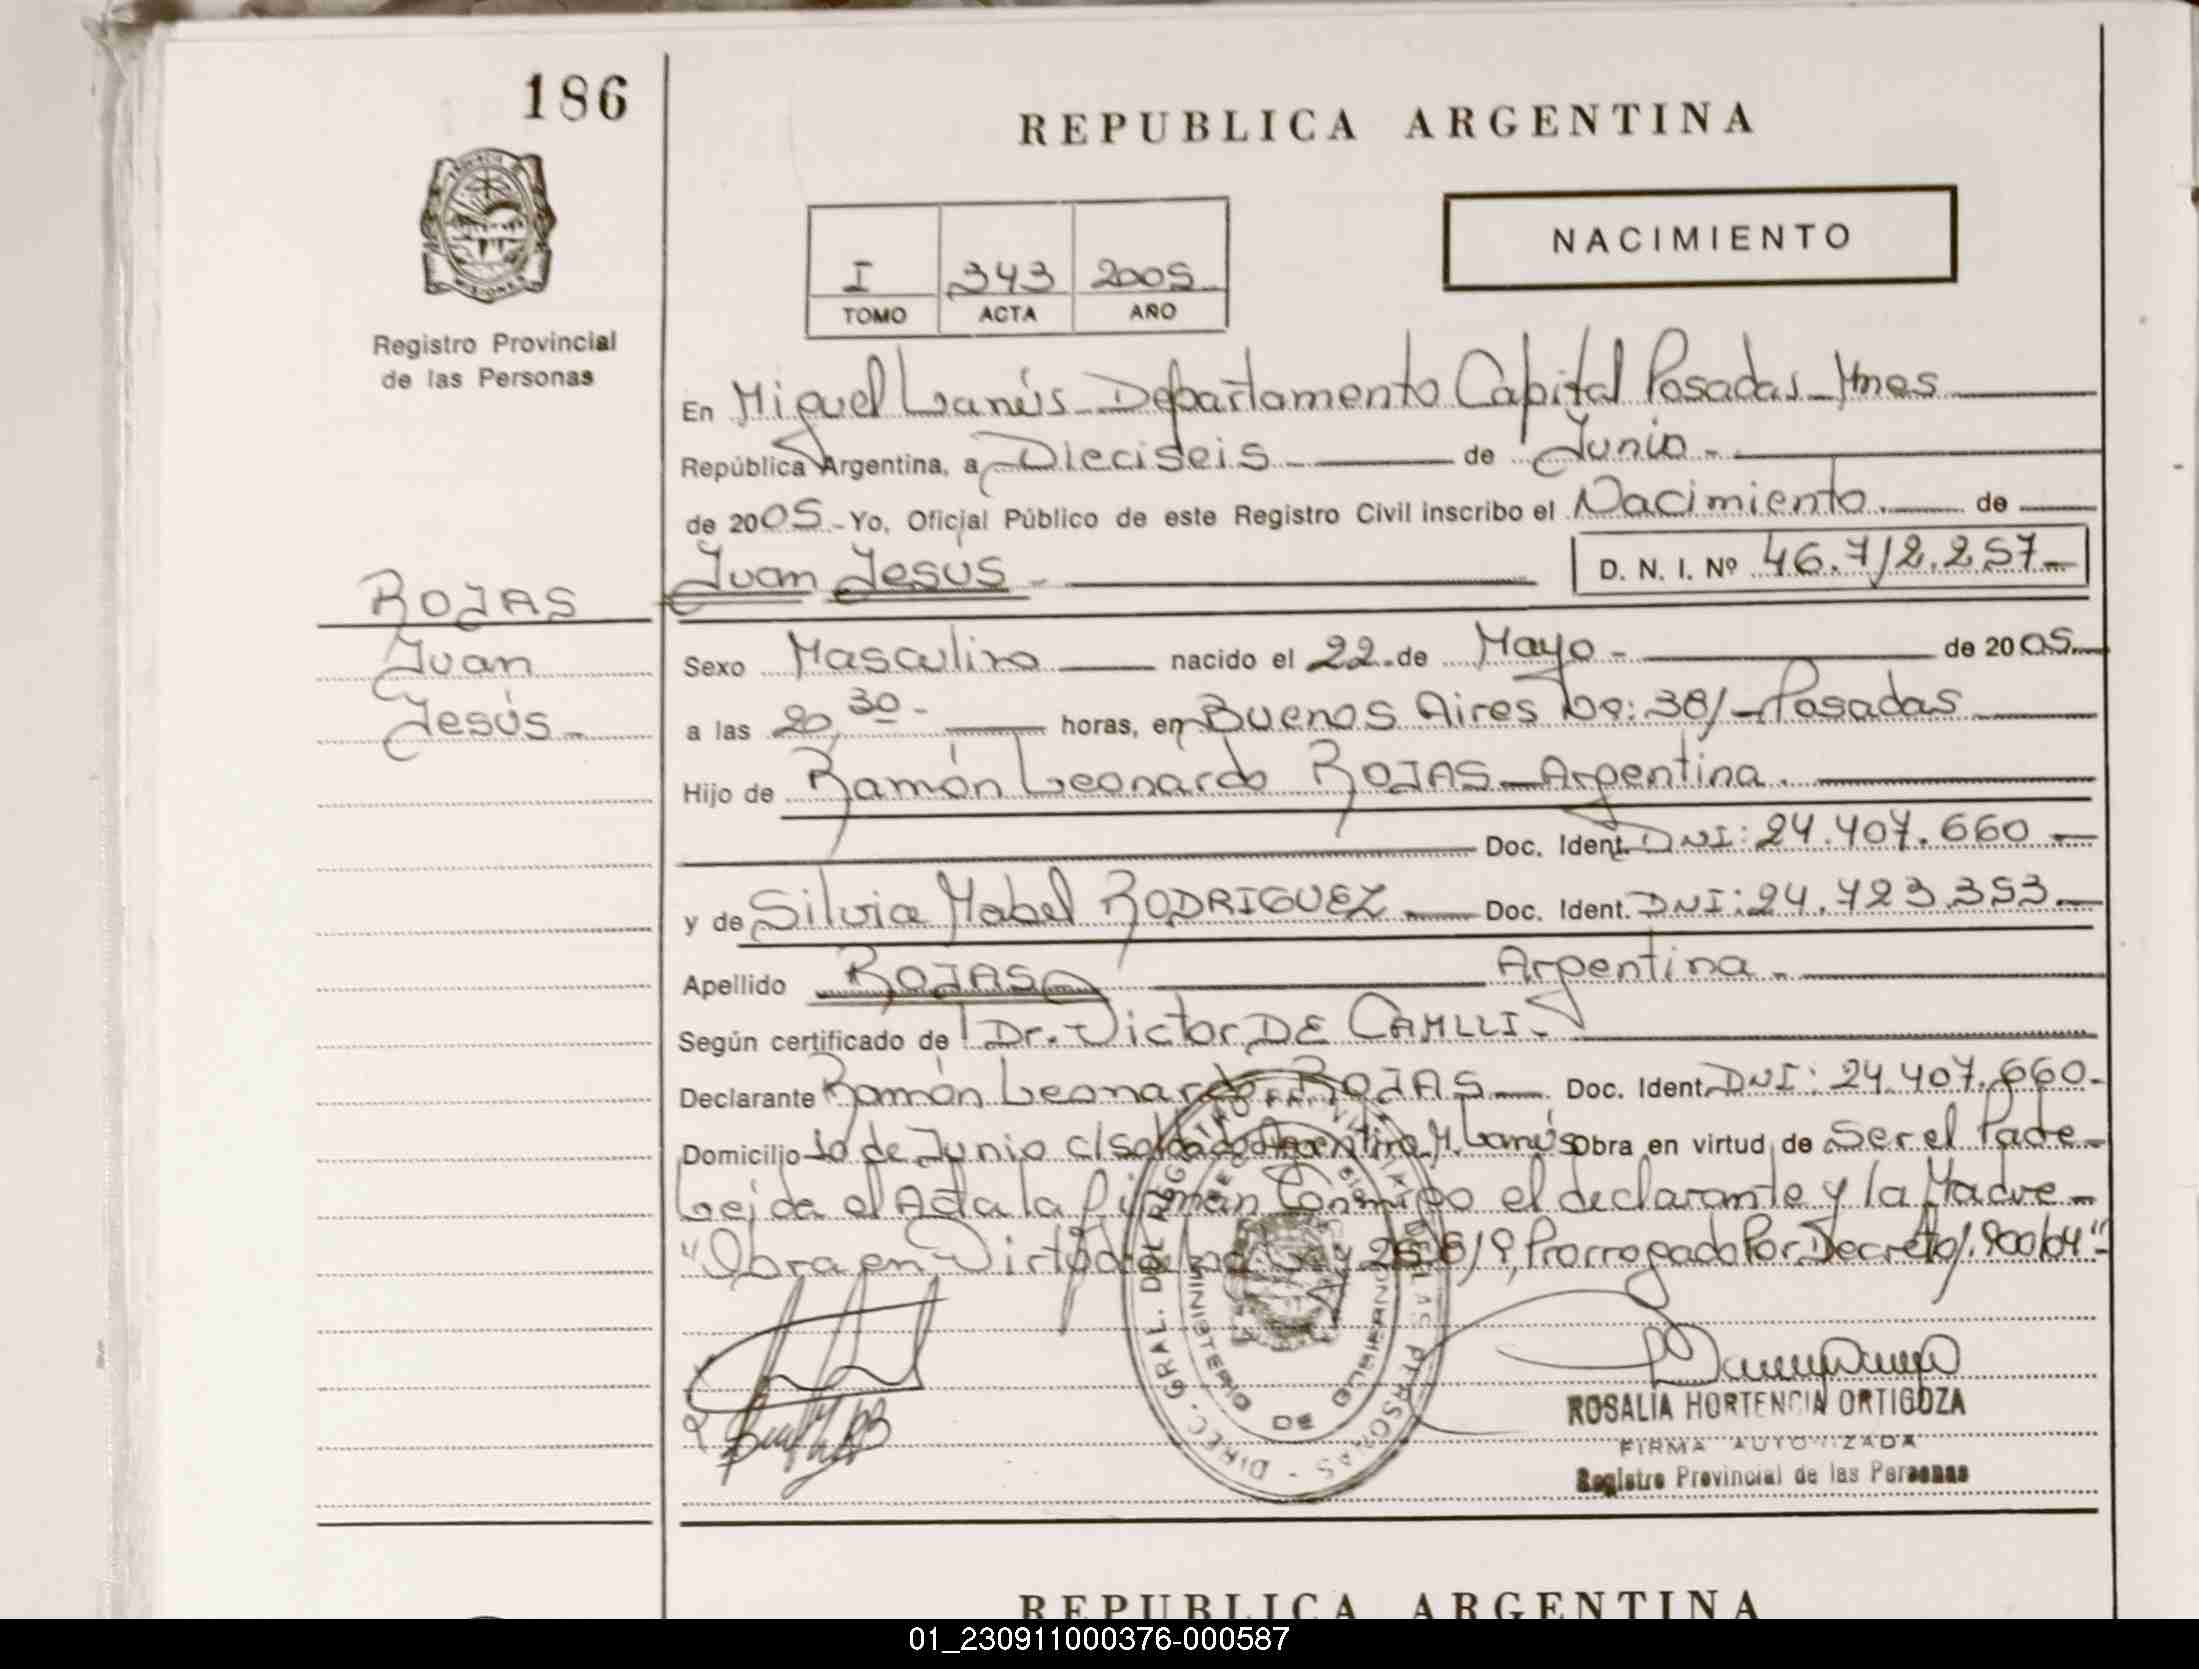 186
REPUBLICA ARGENTINA
NACIMIENTO
I 343 2005
TOMO ACTA AÑO
MISIONES
Registro Provincial
de las Personas
En Miguel Lanús - Departamento Capital Posadas - Mnes
República Argentina, a Dieciseis - de Junio -
de 2005 - Yo, Oficial Público de este Registro Civil inscribo el Nacimiento. de
Juan Jesús - D. N. I. Nº 46.712.257 -
ROJAS
Juan
Jesús -
Sexo Masculino nacido el 22 de Mayo - de 2005
a las 20,30 - horas, en Buenos Aires No: 381 - Posadas
Hijo de Ramón Leonardo ROJAS - Argentina.
Doc. Ident. DNI: 24.407.660 -
y de Silvia Mabel RODRIGUEZ - Doc. Ident. DNI: 24.723.353 -
Apellido ROJAS Argentina -
Según certificado de Dr. Victor DE CAMLLI -
Declarante Ramón Leonardo ROJAS - Doc. Ident. DNI: 24.407.660 -
Domicilio 10 de Junio c/Soldado Argentino M. Lanús Obra en virtud de Ser el Padre -
Leida el Acta la firman Conmigo el declarante y la Madre -
"Obra en Virtud de la Ley 25.819, Prorrogado Por Decreto 1.900/04" -
DIREC. GRAL. DEL REGISTRO PROVINCIAL DE LAS PERSONAS -
MINISTERIO DE GOBIERNO
ROSALIA HORTENCIA ORTIGOZA
FIRMA AUTORIZADA
Registro Provincial de las Personas
REPUBLICA ARGENTINA
01_230911000376-000587